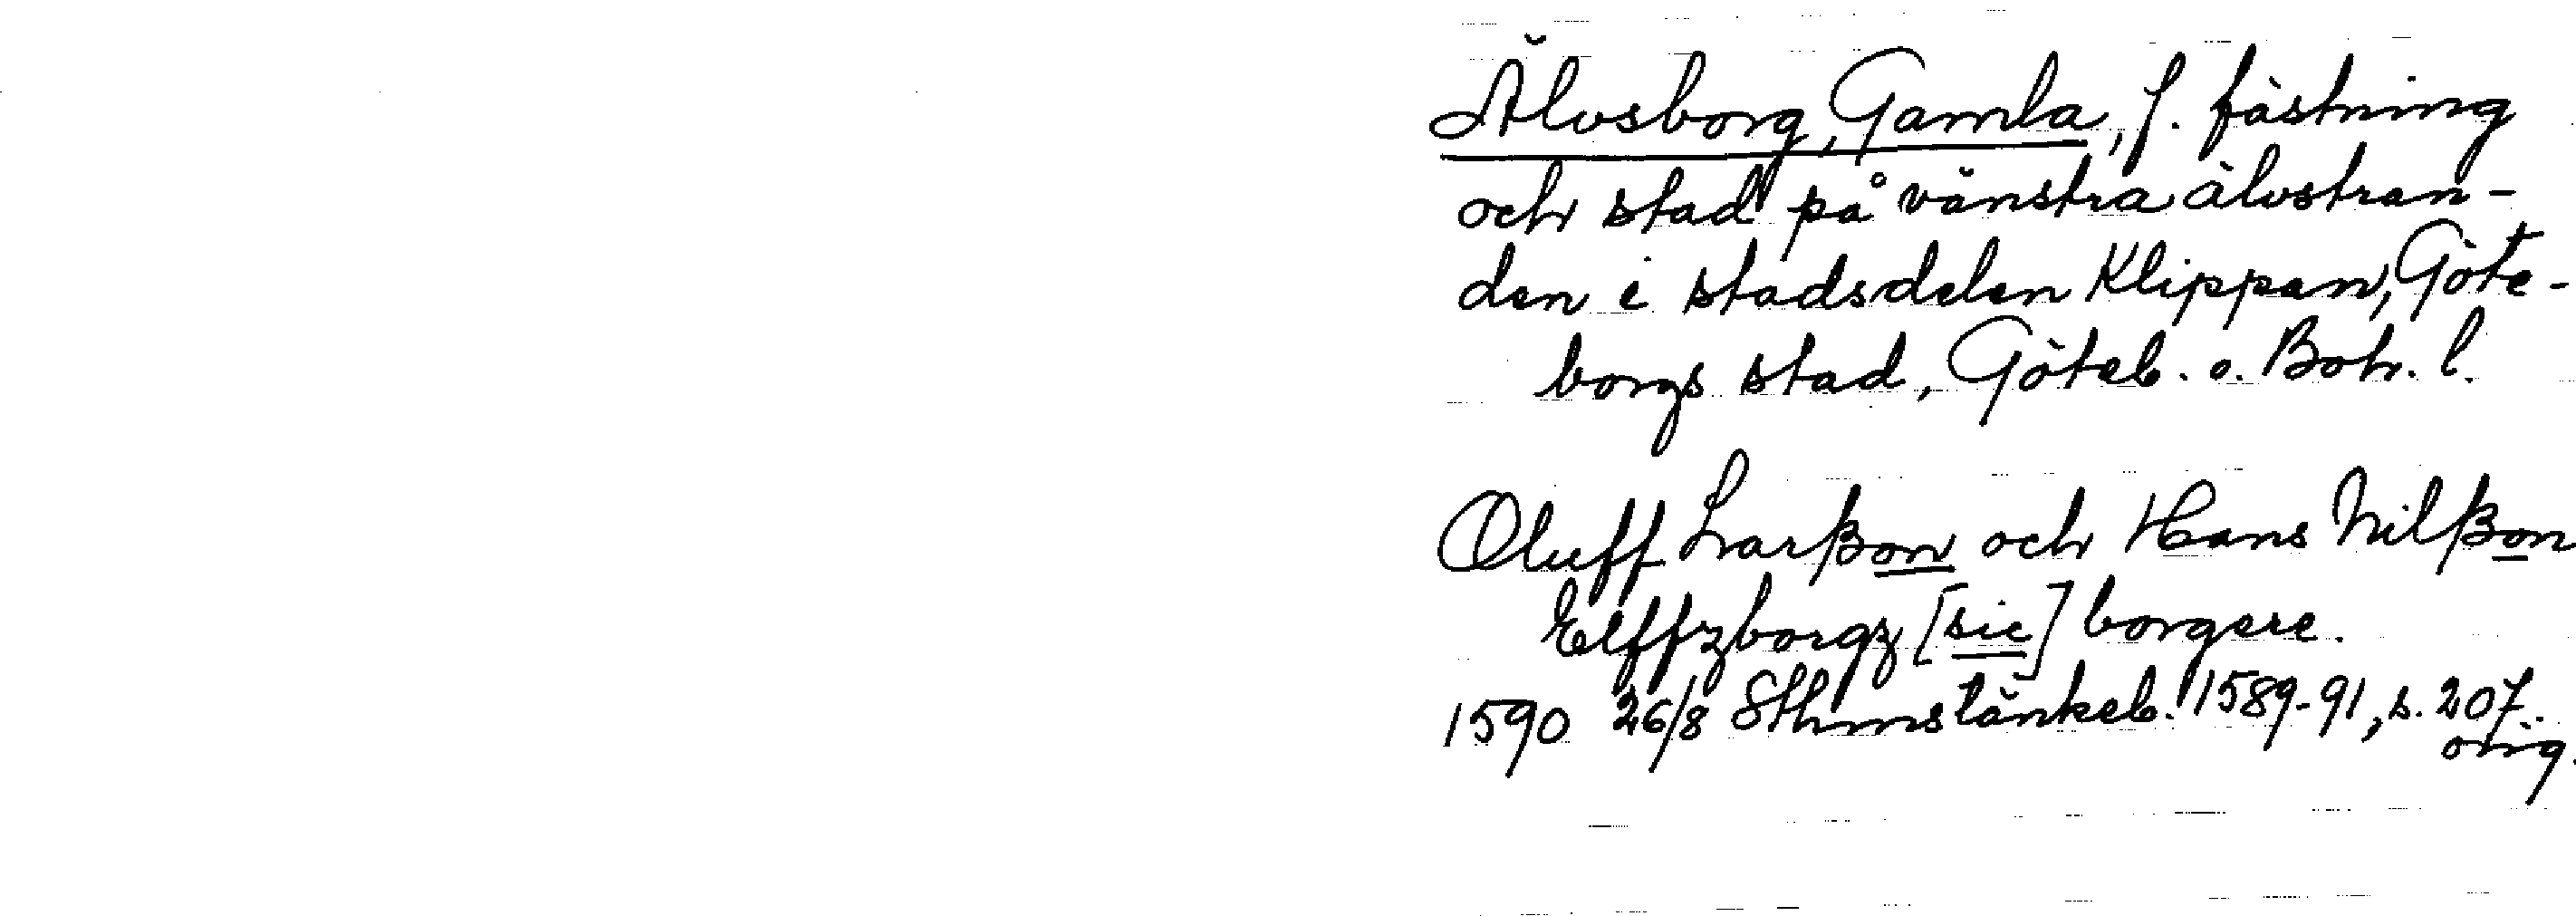 Älvsborg, Gamla, f. fästning
och stad på vänstra älvstran-
den i stadsdelen Klippan, Göte-
borgs stad, Göteb. o. Boh. l.
Oluff Larßon och Hans Nilßon
Elffzborgz [sic] borgere.
1590 26/8 Sthmstänkeb. 1589-91, s. 207.
orig.